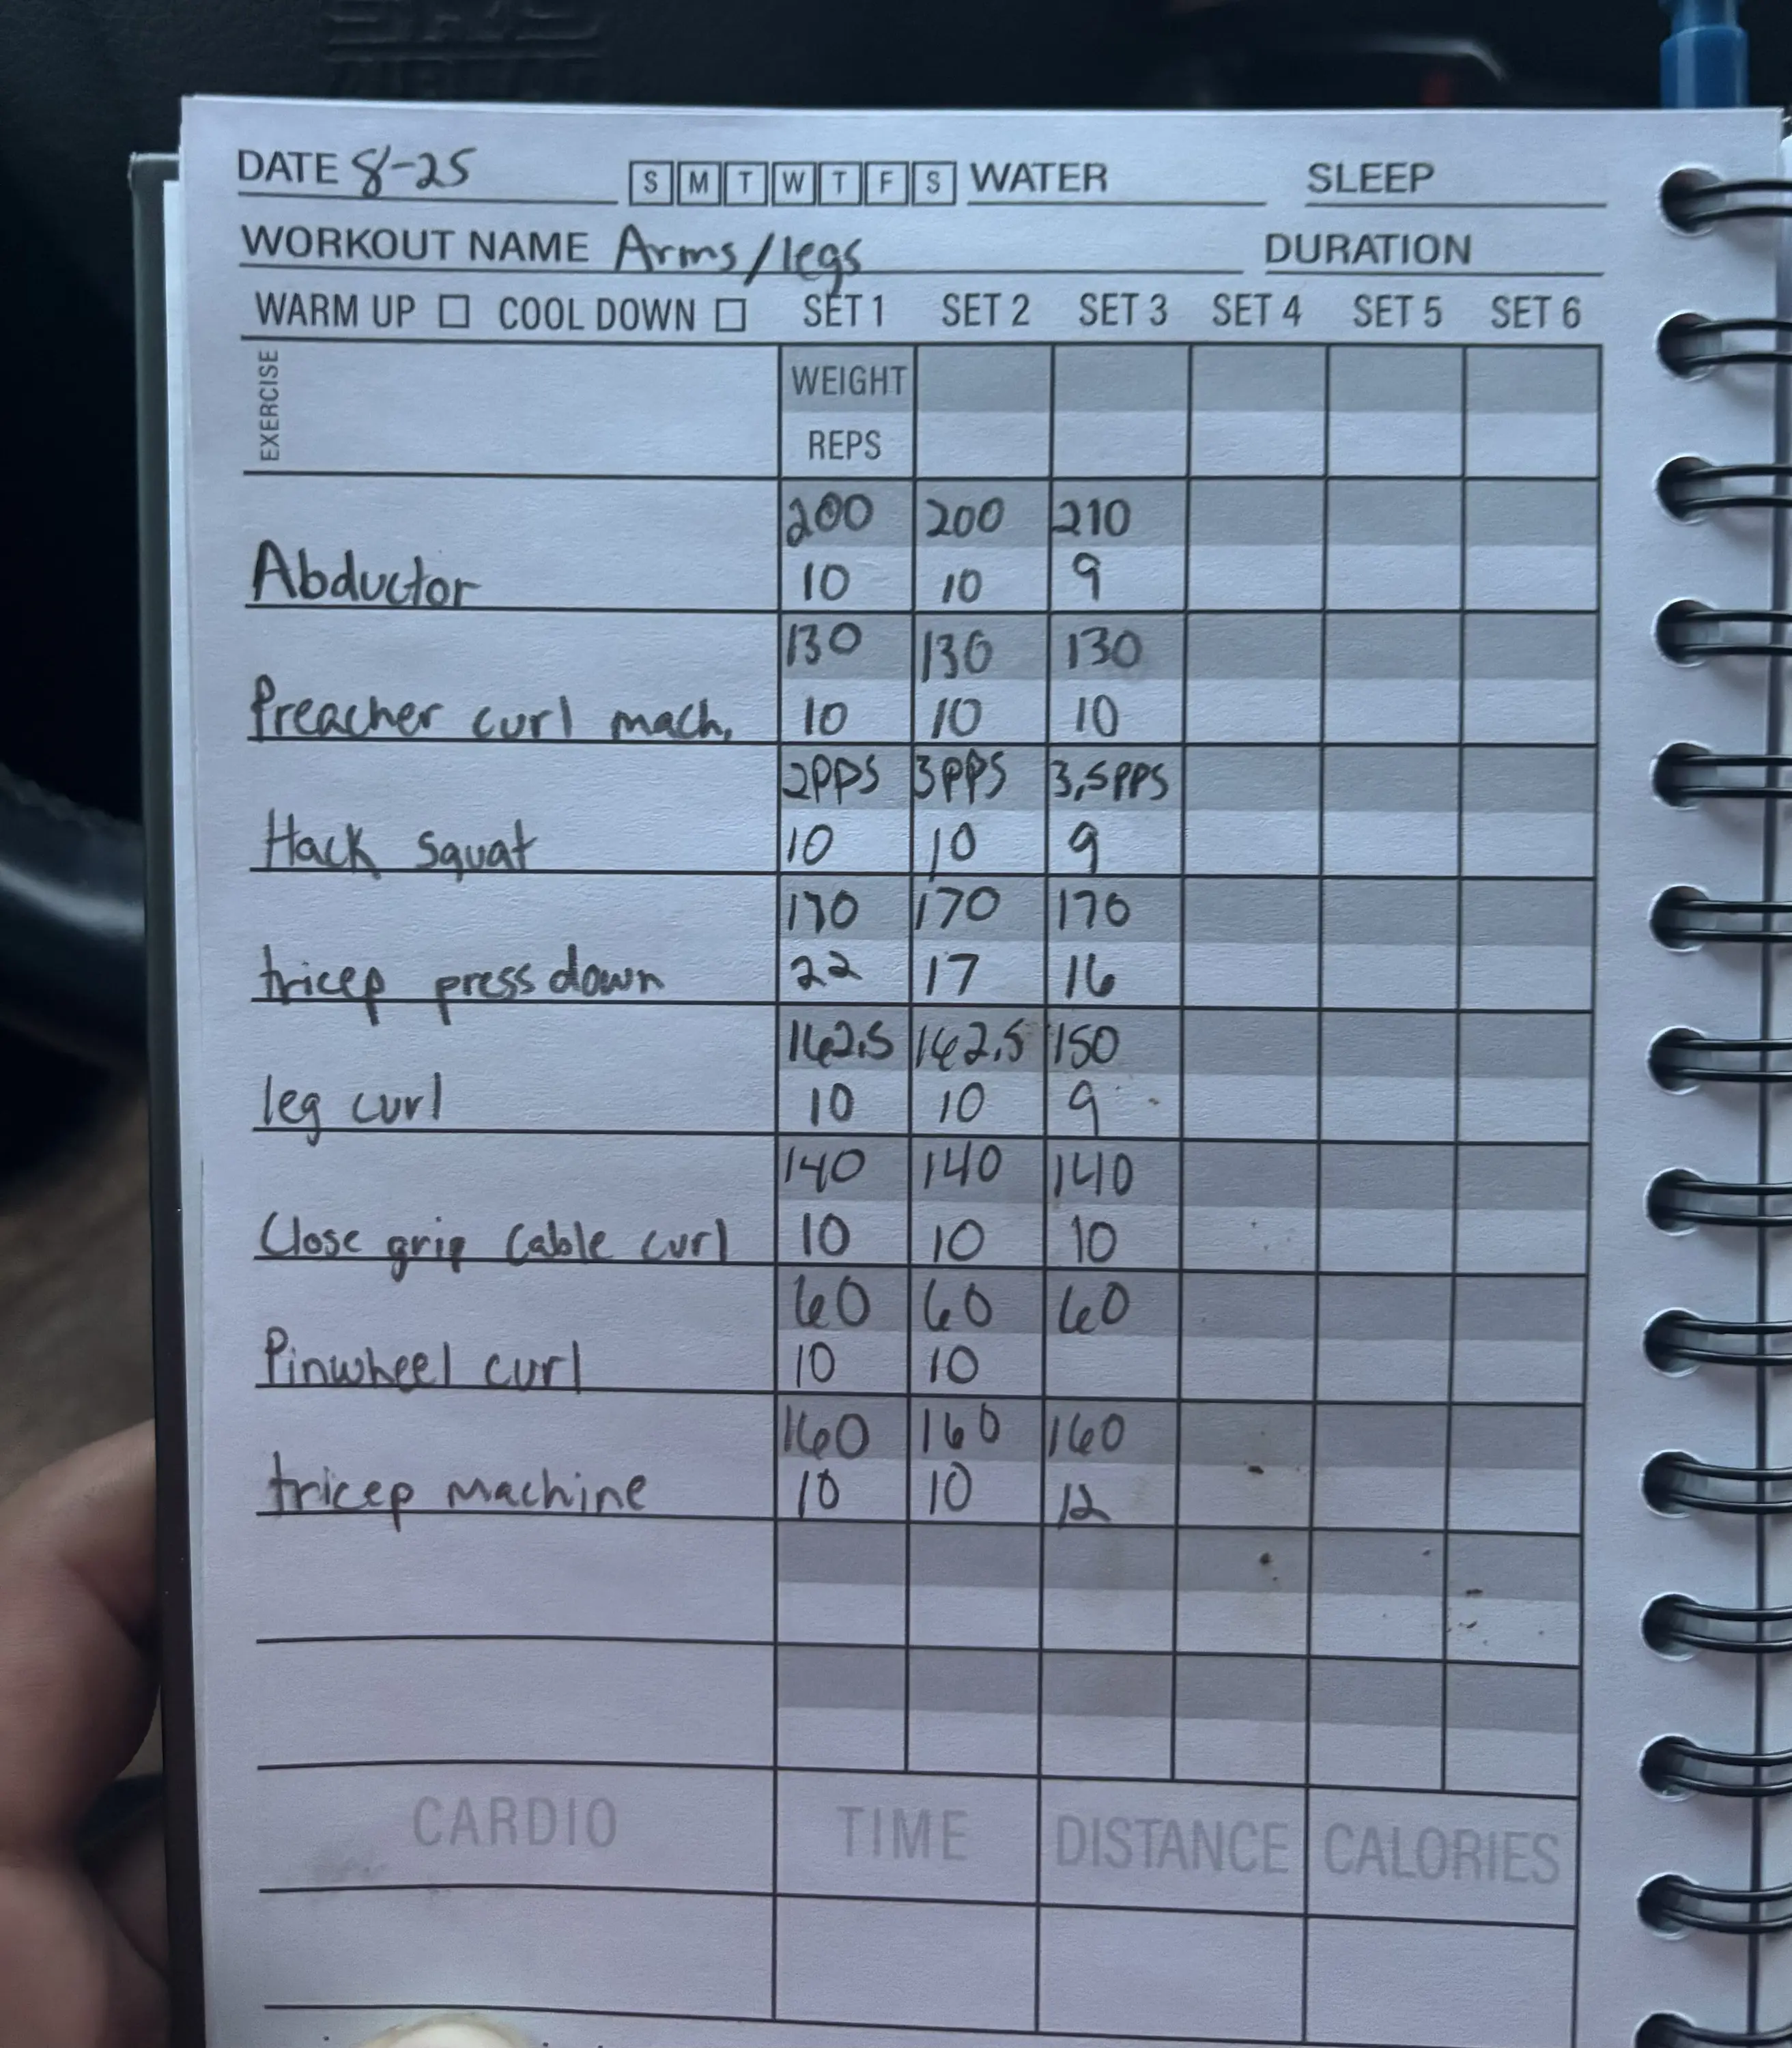 SRS
AIRBAG
DATE 8-25 S M T W T F S WATER SLEEP
WORKOUT NAME Arms/legs DURATION
WARM UP COOL DOWN SET 1 SET 2 SET 3 SET 4 SET 5 SET 6
EXERCISE
WEIGHT
REPS
200 200 210
Abductor 10 10 9
130 130 130
Preacher curl mach. 10 10 10
2PPS 3PPS 3,5PPS
Hack squat 10 10 9
170 170 170
tricep press down 22 17 16
162.5 162.5 150
leg curl 10 10 9
140 140 140
Close grip cable curl 10 10 10
60 60 60
Pinwheel curl 10 10
160 160 160
tricep machine 10 10 12
CARDIO TIME DISTANCE CALORIES